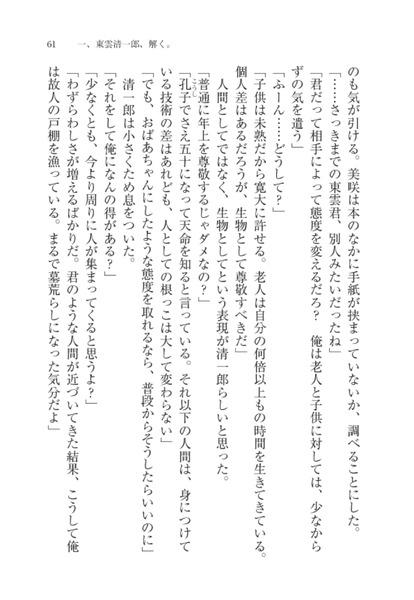 61　一、東雲清一郎、解く。
のも気が引ける。美咲は本のなかに手紙が挟まっていないか、調べることにした。
「……さっきまでの東雲君、別人みたいだったね」
「君だって相手によって態度を変えるだろ？　俺は老人と子供に対しては、少なから
ずの気を遣う」
「ふーん……どうして？」
「子供は未熟だから寛大に許せる。老人は自分の何倍以上もの時間を生きてきている。
個人差はあるだろうが、生物として尊敬すべきだ」
人間としてではなく、生物としてという表現が清一郎らしいと思った。
「普通に年上を尊敬するじゃダメなの？」
「孔子でさえ五十になって天命を知ると言っている。それ以下の人間は、身につけて
いる技術の差はあれども、人としての根っこは大して変わらない」
「でも、おばあちゃんにしたような態度を取れるなら、普段からそうしたらいいのに」
清一郎は小さくため息をついた。
「それをして俺になんの得がある？」
「少なくとも、今より周りに人が集まってくると思うよ？」
「わずらわしさが増えるばかりだ。君のような人間が近づいてきた結果、こうして俺
は故人の戸棚を漁っている。まるで墓荒らしになった気分だよ」